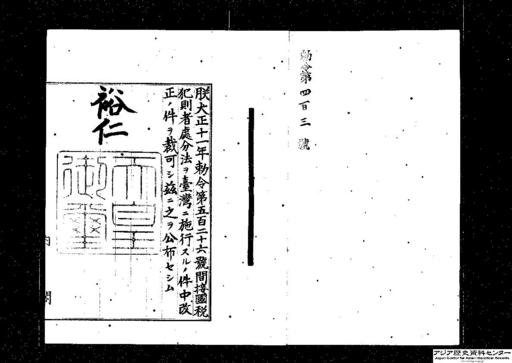 勅令第四百三號
朕大正十一年勅令第五百二十六號間接國税
犯則者處分法ヲ臺灣ニ施行スルノ件中改
正ノ件ヲ裁可シ茲ニ之ヲ公布セシム
裕仁
天皇御璽
内閣
アジア歴史資料センター
Japan Center for Asian Historical Records